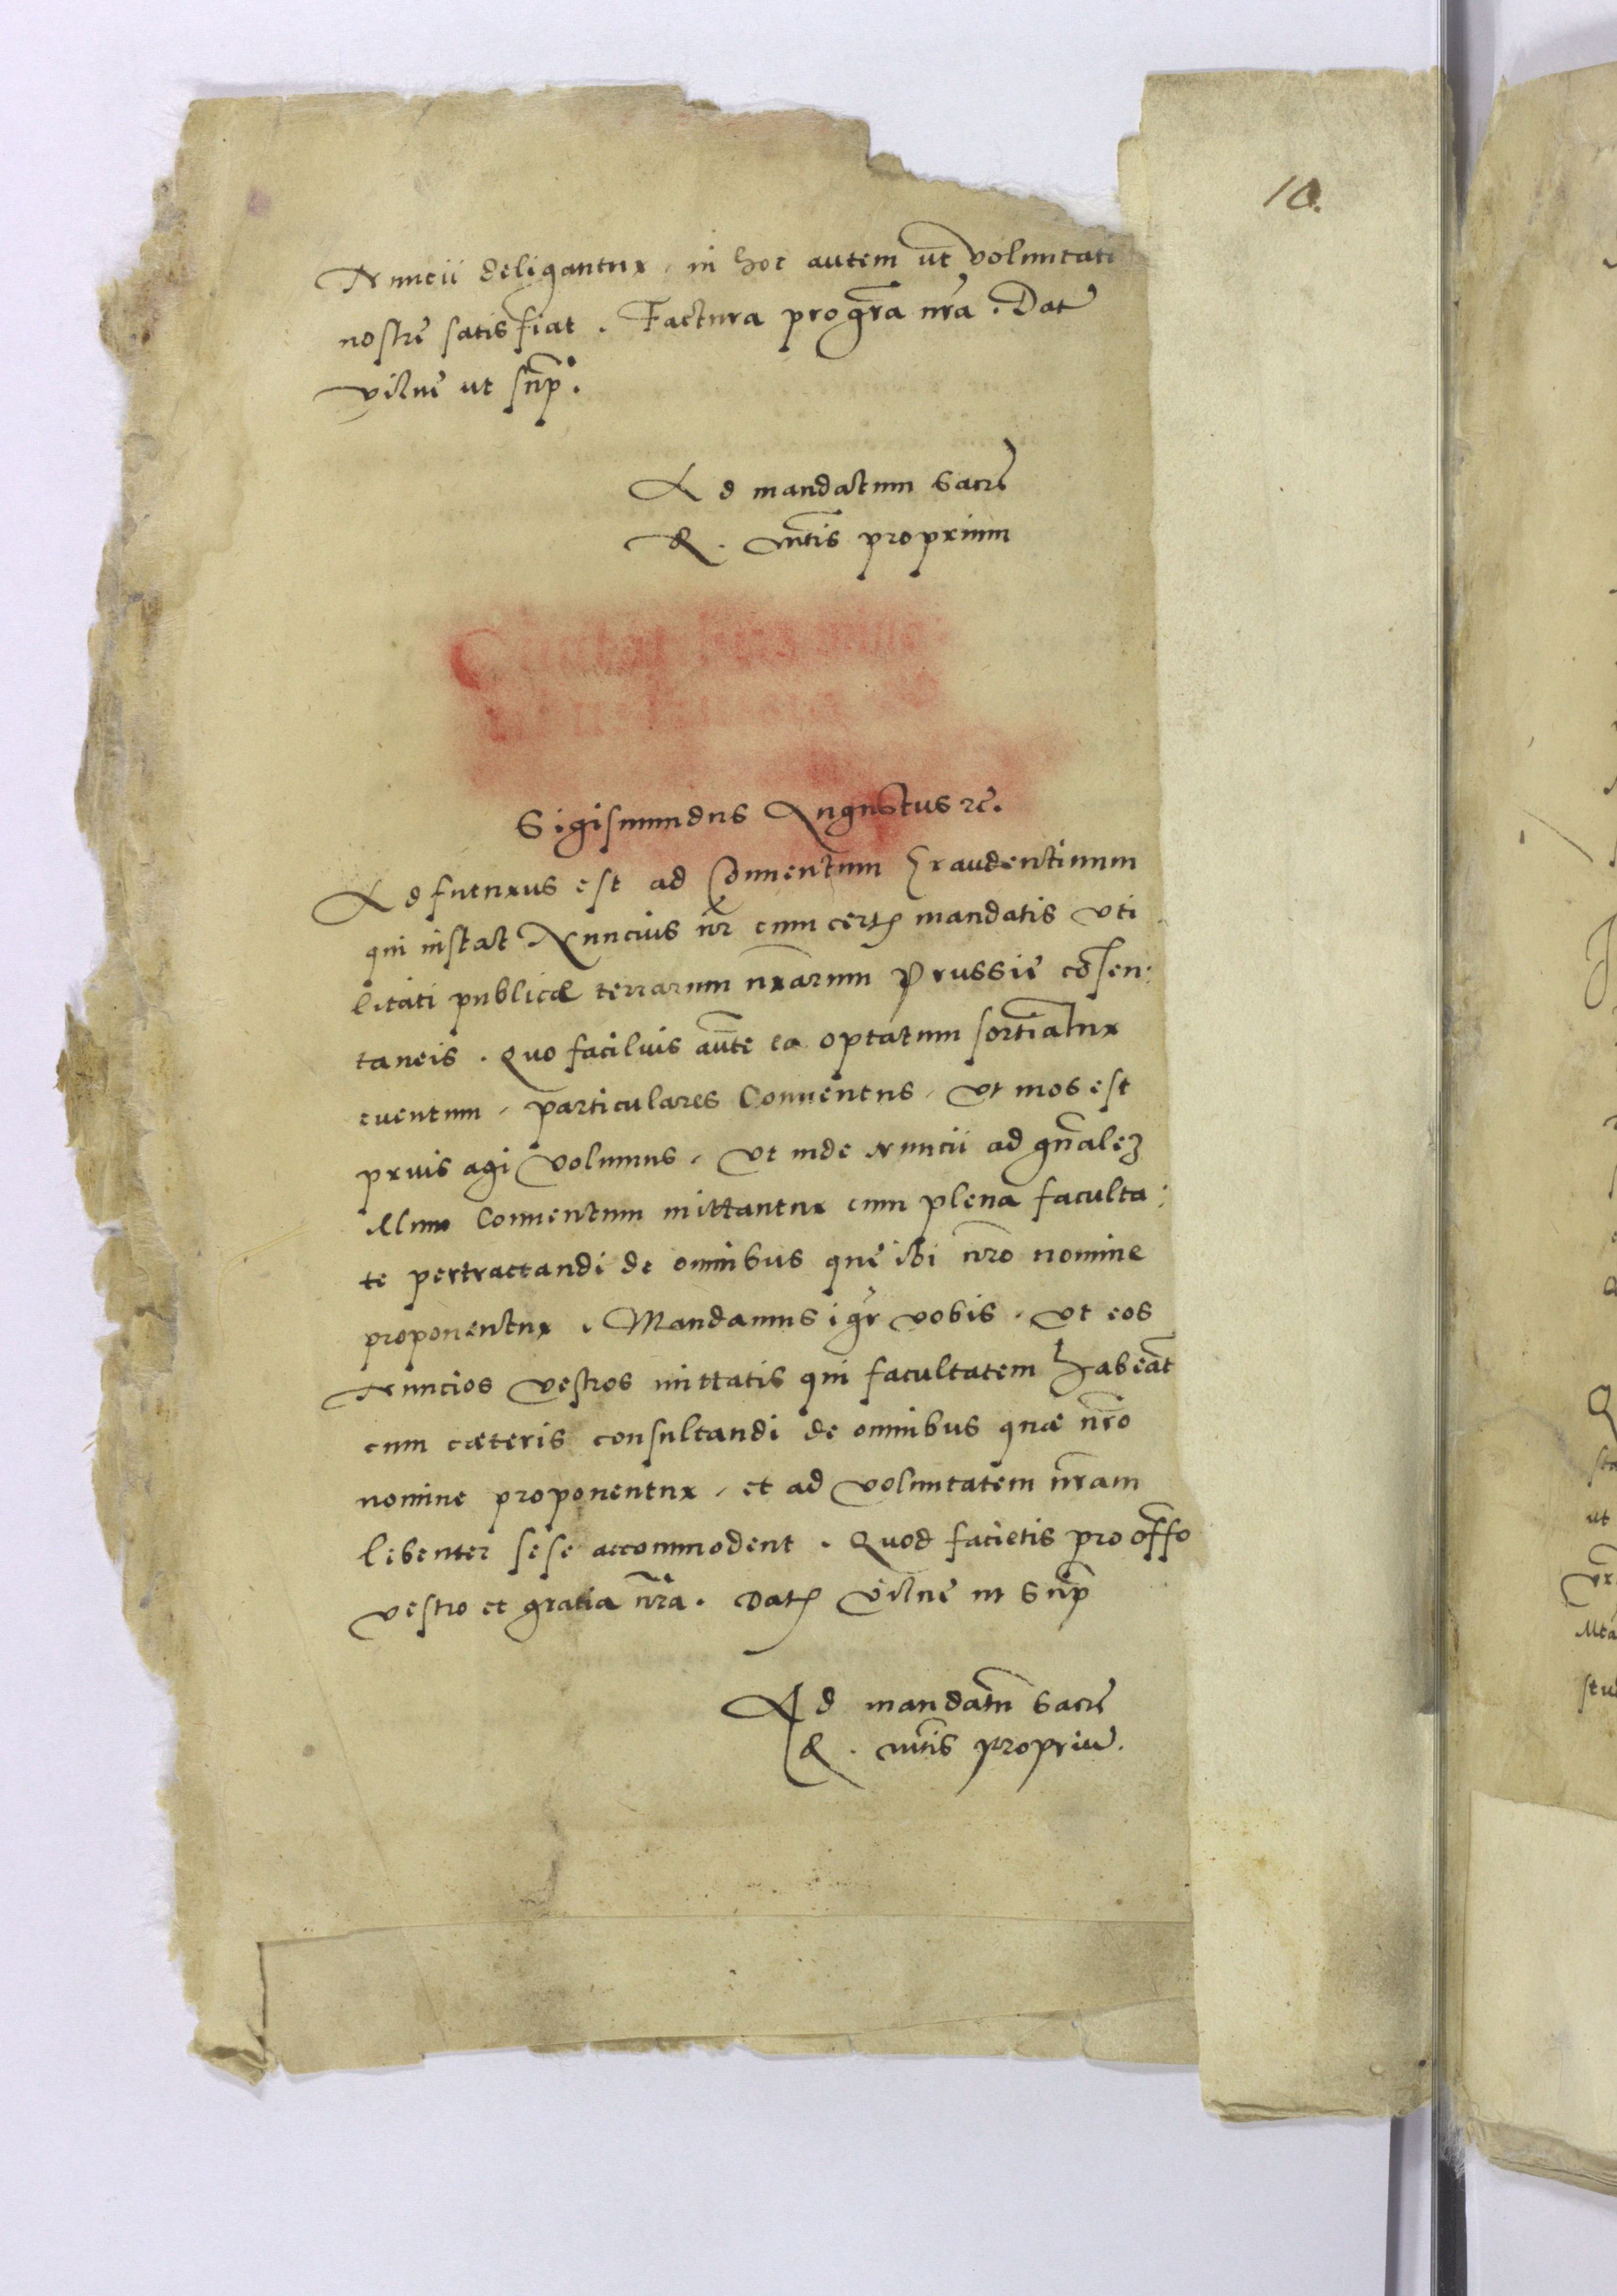 10.
Nuncii deligantur, in hoc autem ut voluntati
nostrę satisfiat. Factura pro gr̃a nr̃a. Dat̃
Vilnę ut sup̃.
Ad mandatum Sacrę
R. Mtis proprium
Sigismundus Augustus ꝛc.
Adfuturus est ad Conuentum Graudentinum
qui instat Nuncius nr̃ cum certis mandatis uti
litati publicæ terrarum nr̃arum Prussię cõsen:
taneis. Quo facilius aũte ea optatum sortiãtur
euentum, particulares Conuentus, ut mos est
prius agi volumus, ut inde Nuncii ad gñalem
illum Conuentum mittantur cum plena faculta:
te pertractandi de omnibus quę ibi nr̃o nomine
proponentur. Mandamus igr̃ vobis, ut eos
Nuncios vestros mittatis qui facultatem habeãt
cum cæteris consultandi de omnibus quæ nr̃o
nomine proponentur, et ad voluntatem nr̃am
libenter sese accommodent. Quod facietis pro off̃o
vestro et gratia nr̃a. Datꝭ Vilnę ut Sup̃
Ad mandatũ Sacrę
R. Mtis propriũ.